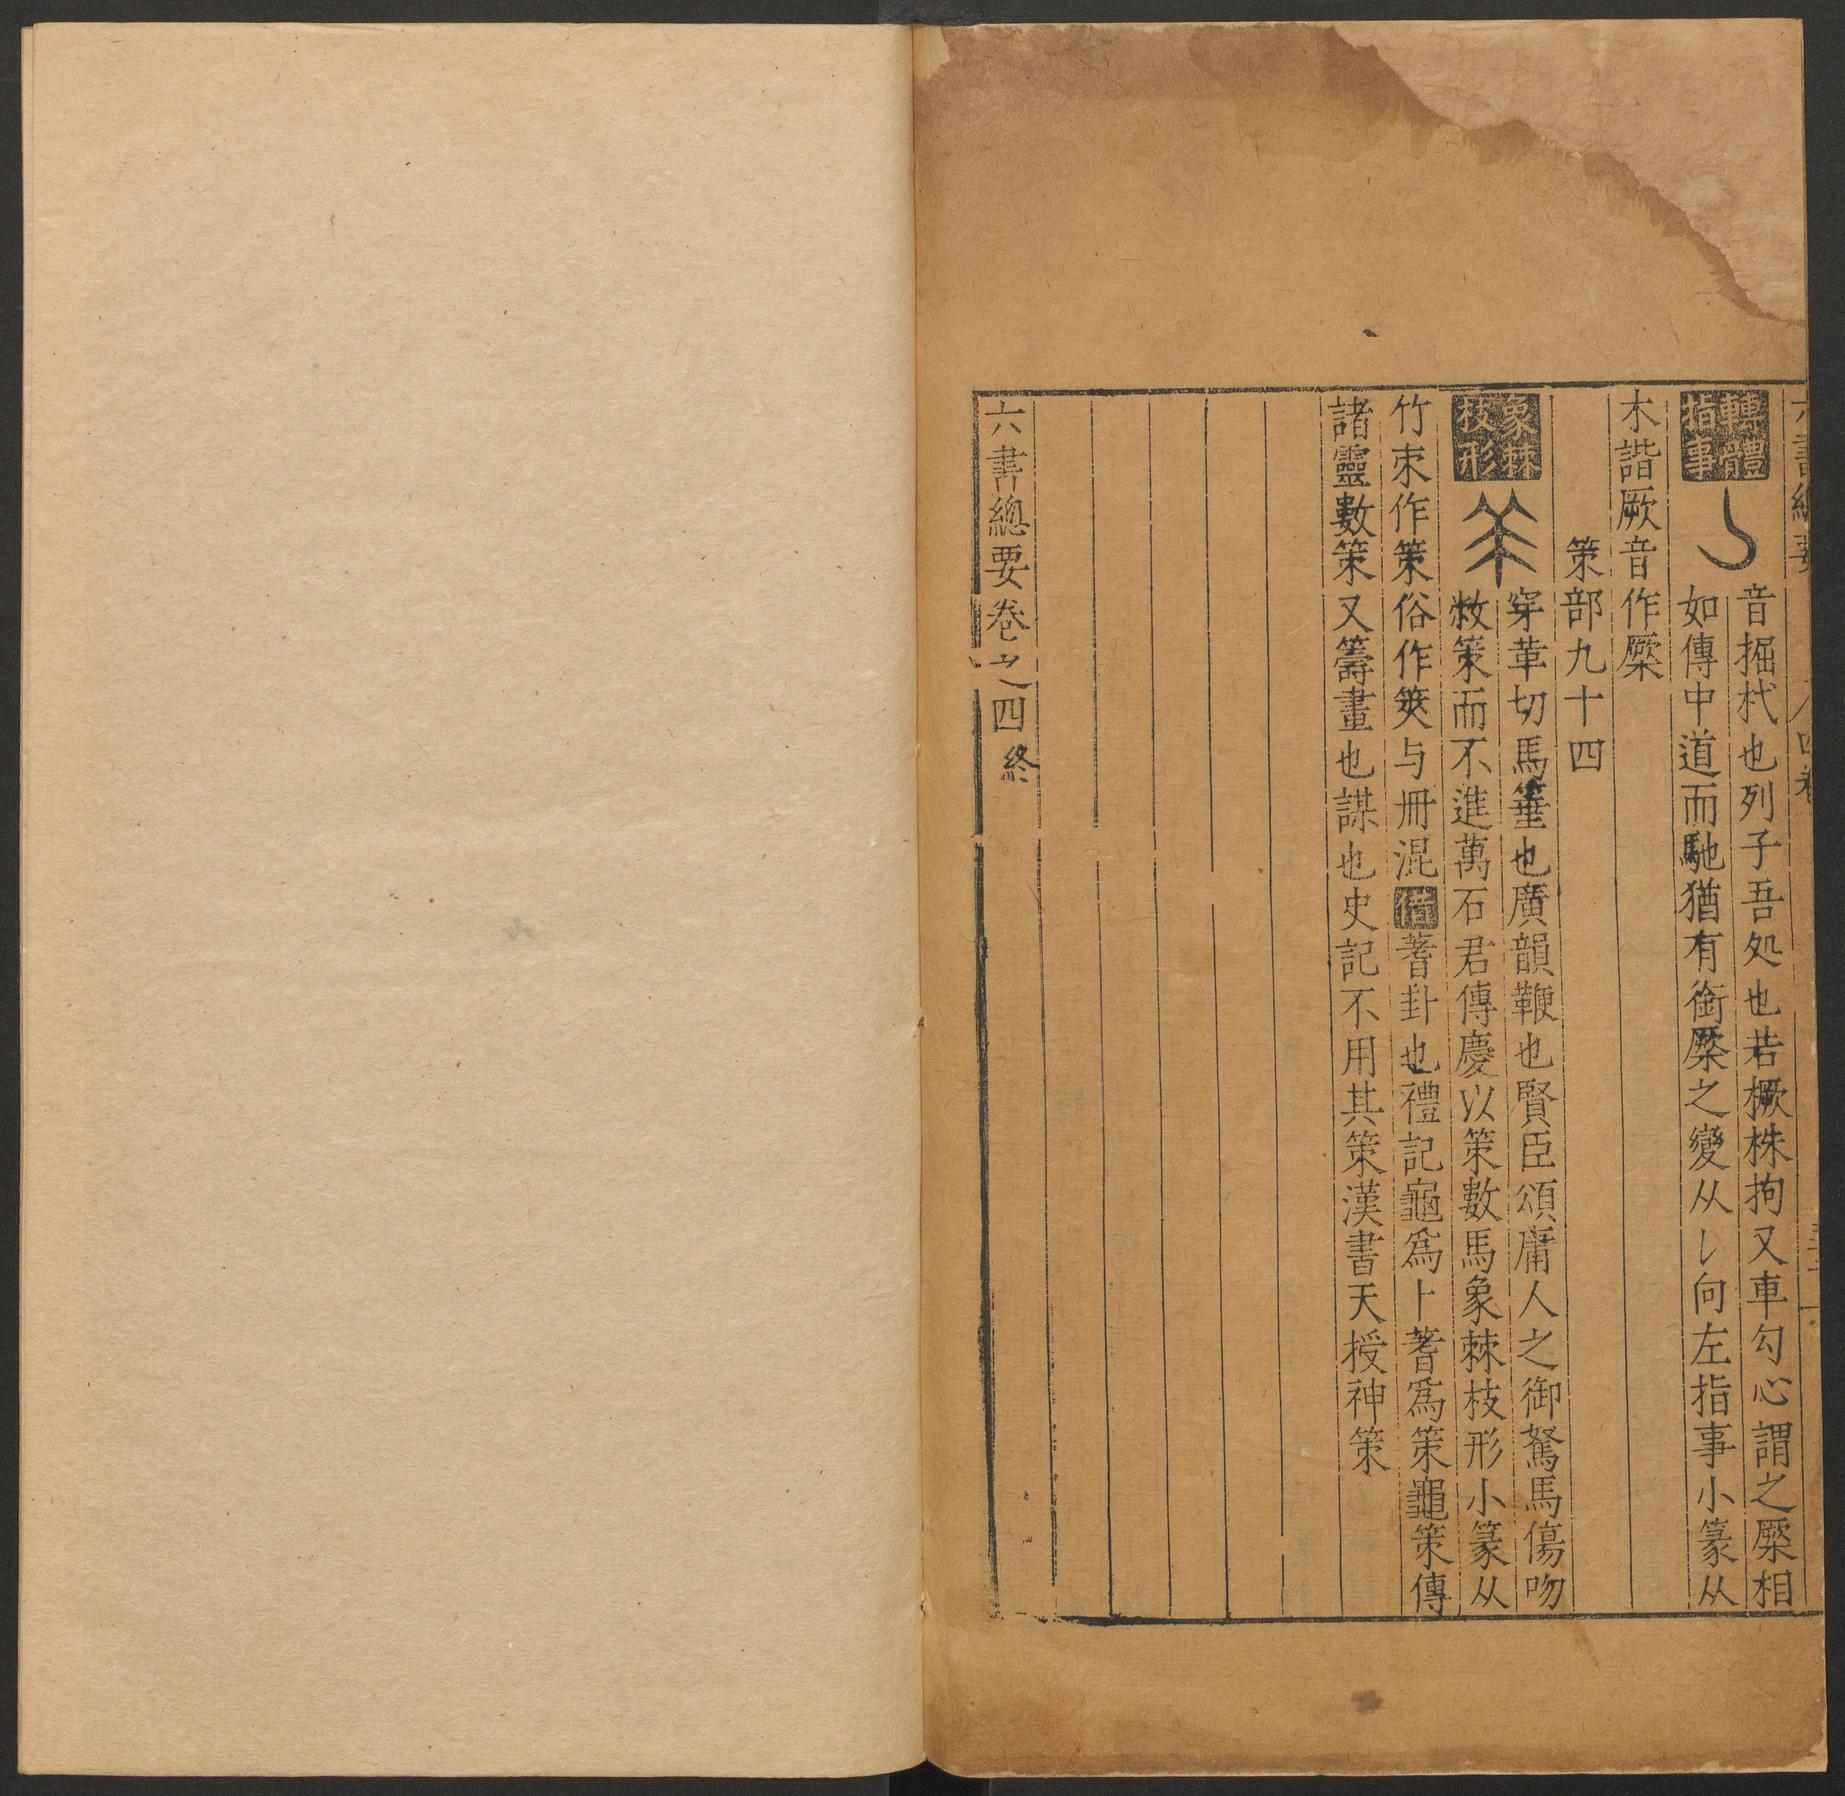 六書總要 四卷
轉體指事 音掘杙也列子吾処也若橛株拘又車勾心謂之橜相
如傳中道而馳猶有銜橜之變从𠄌向左指事小篆从
木諧厥音作橜
策部九十四
象棘枝形 穿革切馬箠也廣韻鞭也賢臣頌庸人之御駑馬傷吻
敉策而不進萬石君傳慶以策數馬象棘枝形小篆从
竹朿作策俗作筴与冊混借蓍卦也禮記龜爲卜蓍爲策龜策傳
諸靈數策又籌畫也謀也史記不用其策漢書天授神策
六書總要卷之四終